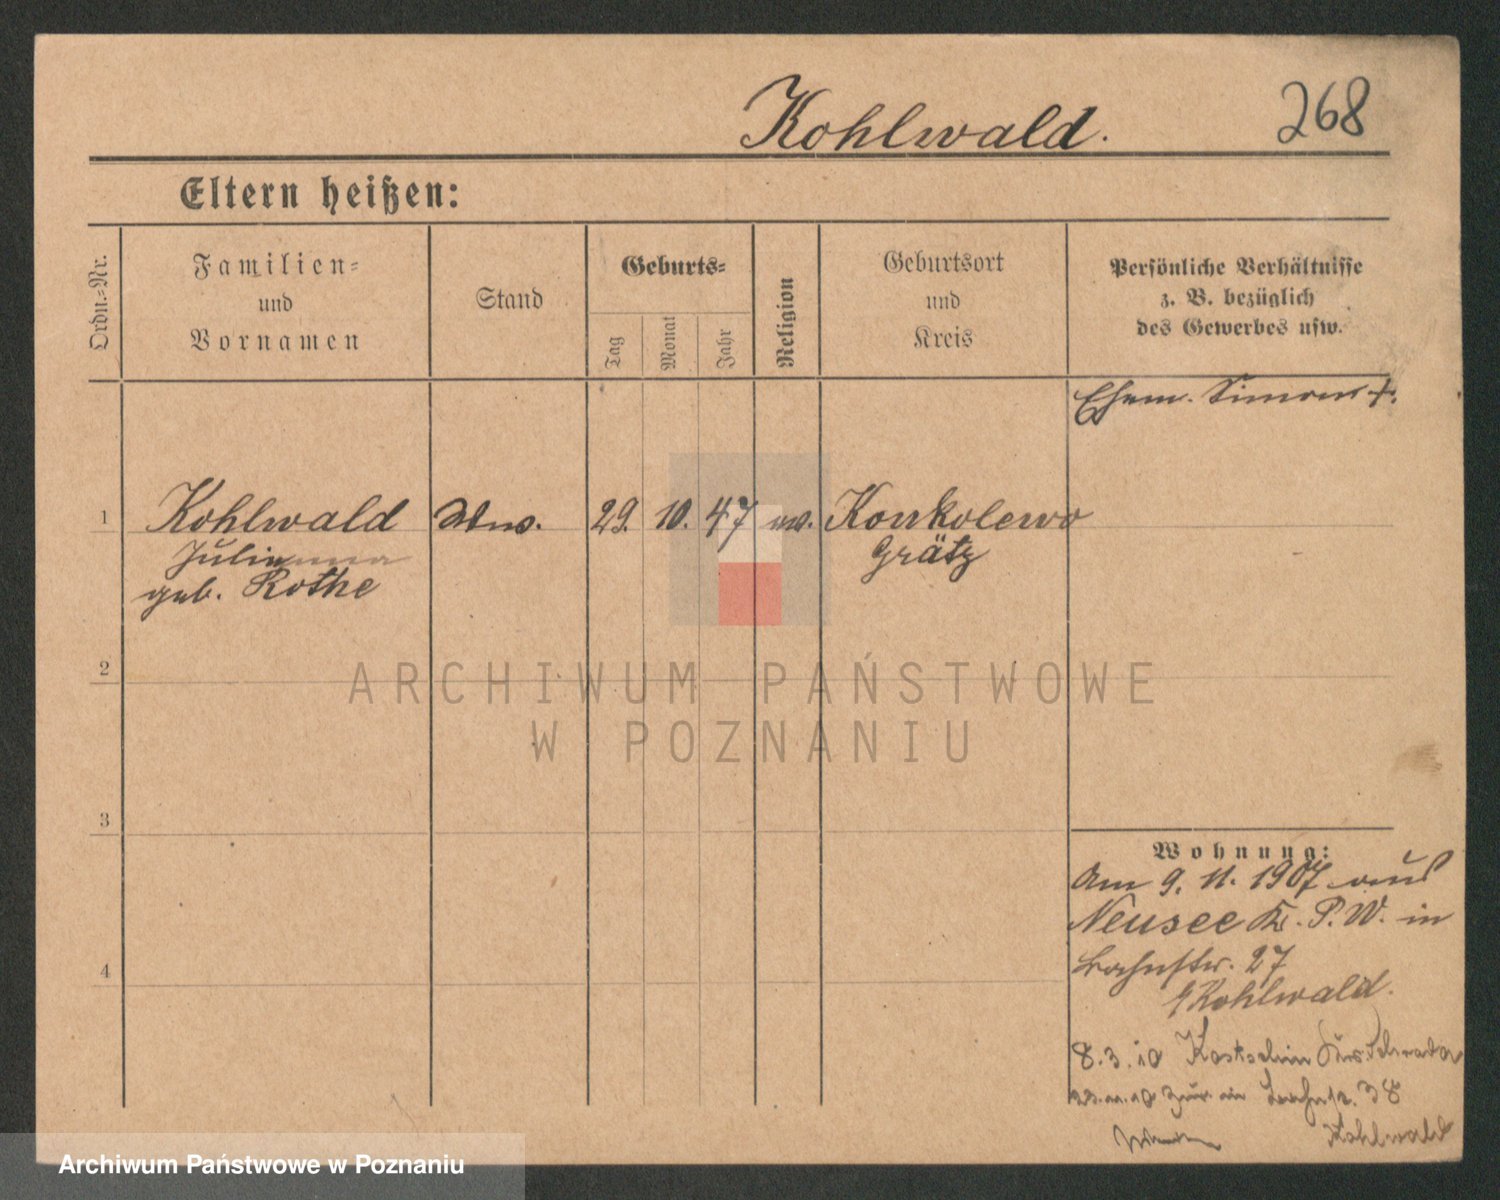 Kohlwald. 268
Eltern heißen:
Ordn.-Nr.
Familien-
und
Vornamen
Stand
Geburts-
Tag
Monat
Jahr
Religion
Geburtsort
und
Kreis
Persönliche Verhältnisse
z. B. bezüglich
des Gewerbes usw.
Ehem. Simon †.
1 Kohlwald Ww. 29. 10. 47 ev. Konkolewo
Julianna Grätz
geb. Rothe
2
ARCHIWUM PAŃSTWOWE
W POZNANIU
3
4
Wohnung:
Am 9. 11. 1907 aus
Neusee Kr. P. W. in
Bahnstr. 27
Kohlwald.
8. 3. 10 Kostschin Krs. Schroda
zur. in 38
Kohlwald
Archiwum Państwowe w Poznaniu